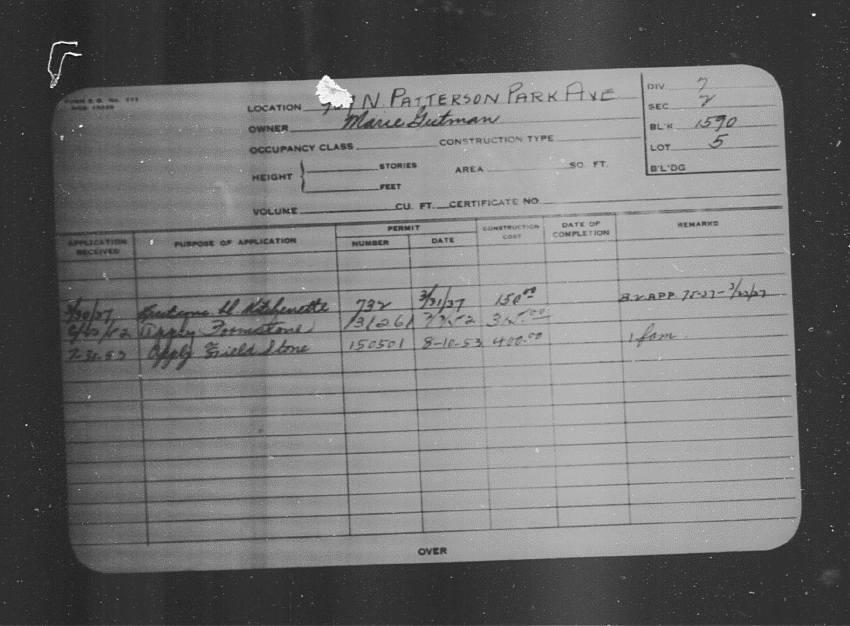 LOCATION N. PATTERSON PARK AVE
OWNER Marie Gutman
OCCUPANCY CLASS CONSTRUCTION TYPE
HEIGHT STORIES AREA SQ. FT.
FEET
VOLUME CU. FT. CERTIFICATE NO.
DIV 7
SEC 2
BL'K 1590
LOT 5
B'L'DG
APPLICATION RECEIVED PURPOSE OF APPLICATION PERMIT NUMBER DATE CONSTRUCTION COST DATE OF COMPLETION REMARKS
3/30/37 Kitchenette 732 3/31/37 150.00 B.V. APP. 75-37-
Apply Formstone 131261
7-31-53 Apply Field Stone 150501 8-10-53 400.00 1 fam
OVER